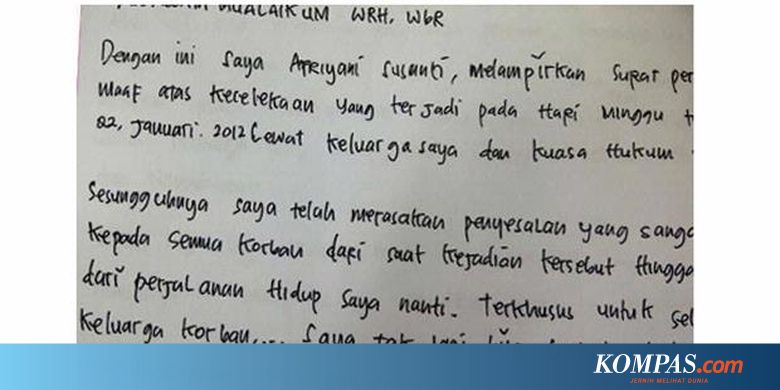 WRH, WbR
Dengan ini saya Afriyani Susanti, melampirkan surat per
Maaf atas kecelekaan yang terjadi pada Hari Minggu t
22, Januari. 2012 Lewat keluarga saya dan kuasa Hukum
Sesungguhnya saya telah merasakan penyesalan yang sanga
kepada semua korban dari saat kejadian tersebut Hingga
dari perjalanan Hidup saya nanti. Terkhusus untuk sel
keluarga korban.... Saya tak lagi
KOMPAS.com
JERNIH MELIHAT DUNIA